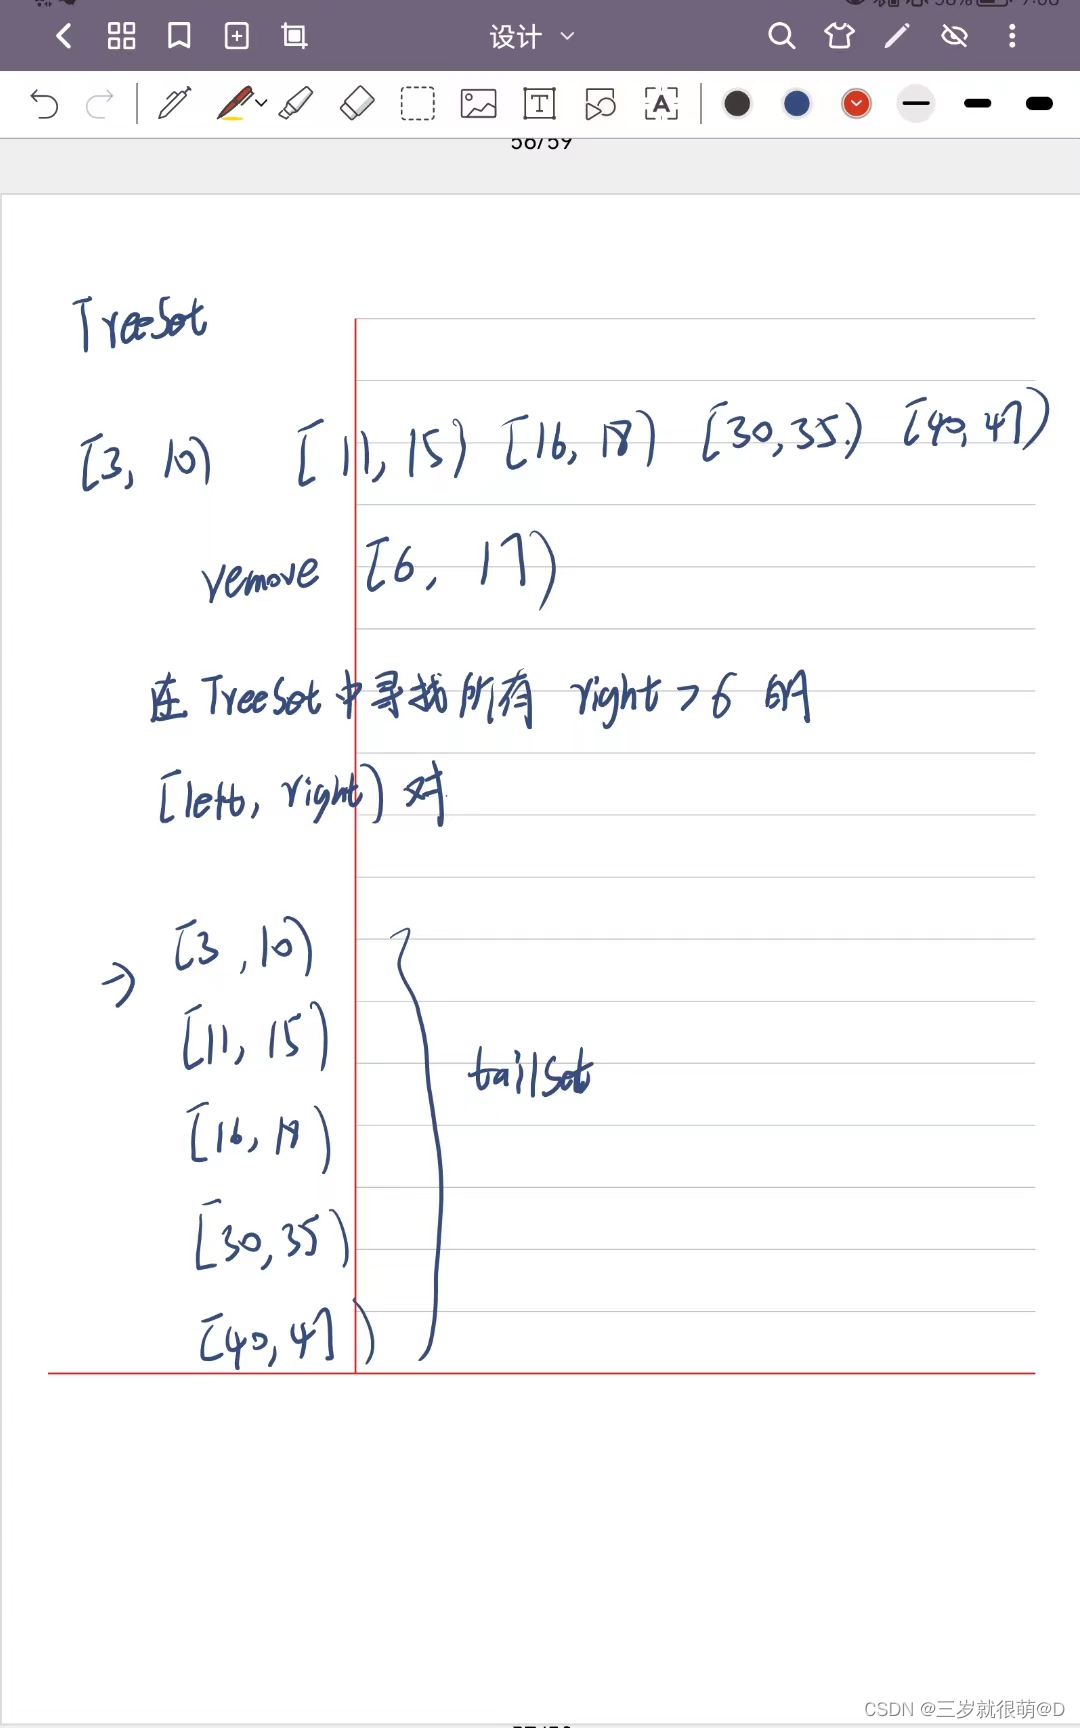 设计
56/59
TreeSet
[3, 10) [11, 15) [16, 18) [30,35) [40, 47)
remove [6, 17)
在 TreeSet 中寻找所有 right > 6 的
[left, right) 对
⇒ [3, 10)
[11, 15)
[16, 18)
[30,35)
[40, 47)
tailSet
CSDN @三岁就很萌@D